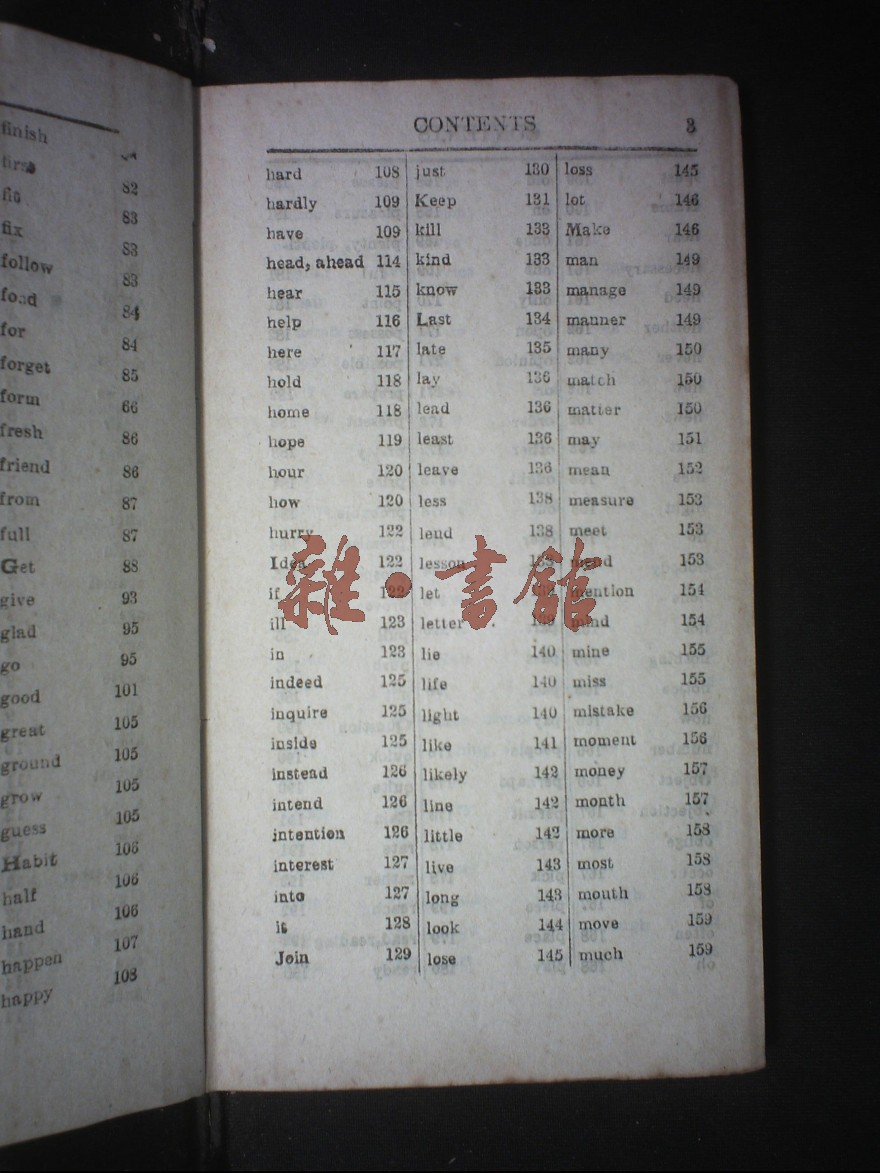 finish
first 82
fit 83
fix 83
follow 83
food 84
for 84
forget 85
form 66
fresh 86
friend 86
from 87
full 87
Get 88
give 93
glad 95
go 95
good 101
great 105
ground 105
grow 105
guess 105
Habit 106
half 106
hand 106
happen 107
happy 108
CONTENTS 3
hard 108
hardly 109
have 109
head, ahead 114
hear 115
help 116
here 117
hold 118
home 118
hope 119
hour 120
how 120
hurry 122
Idea 122
if 122
ill 123
in 123
indeed 125
inquire 125
inside 125
instead 126
intend 126
intention 126
interest 127
into 127
it 128
Join 129
just 130
Keep 131
kill 133
kind 133
know 133
Last 134
late 135
lay 136
lead 136
least 136
leave 136
less 138
lend 138
lesson
let
letter 139
lie 140
life 140
light 140
like 141
likely 142
line 142
little 142
live 143
long 143
look 144
lose 145
loss 145
lot 146
Make 146
man 149
manage 149
manner 149
many 150
match 150
matter 150
may 151
mean 152
measure 153
meet 153
mend 153
mention 154
mind 154
mine 155
miss 155
mistake 156
moment 156
money 157
month 157
more 158
most 158
mouth 158
move 159
much 159
雜·書館